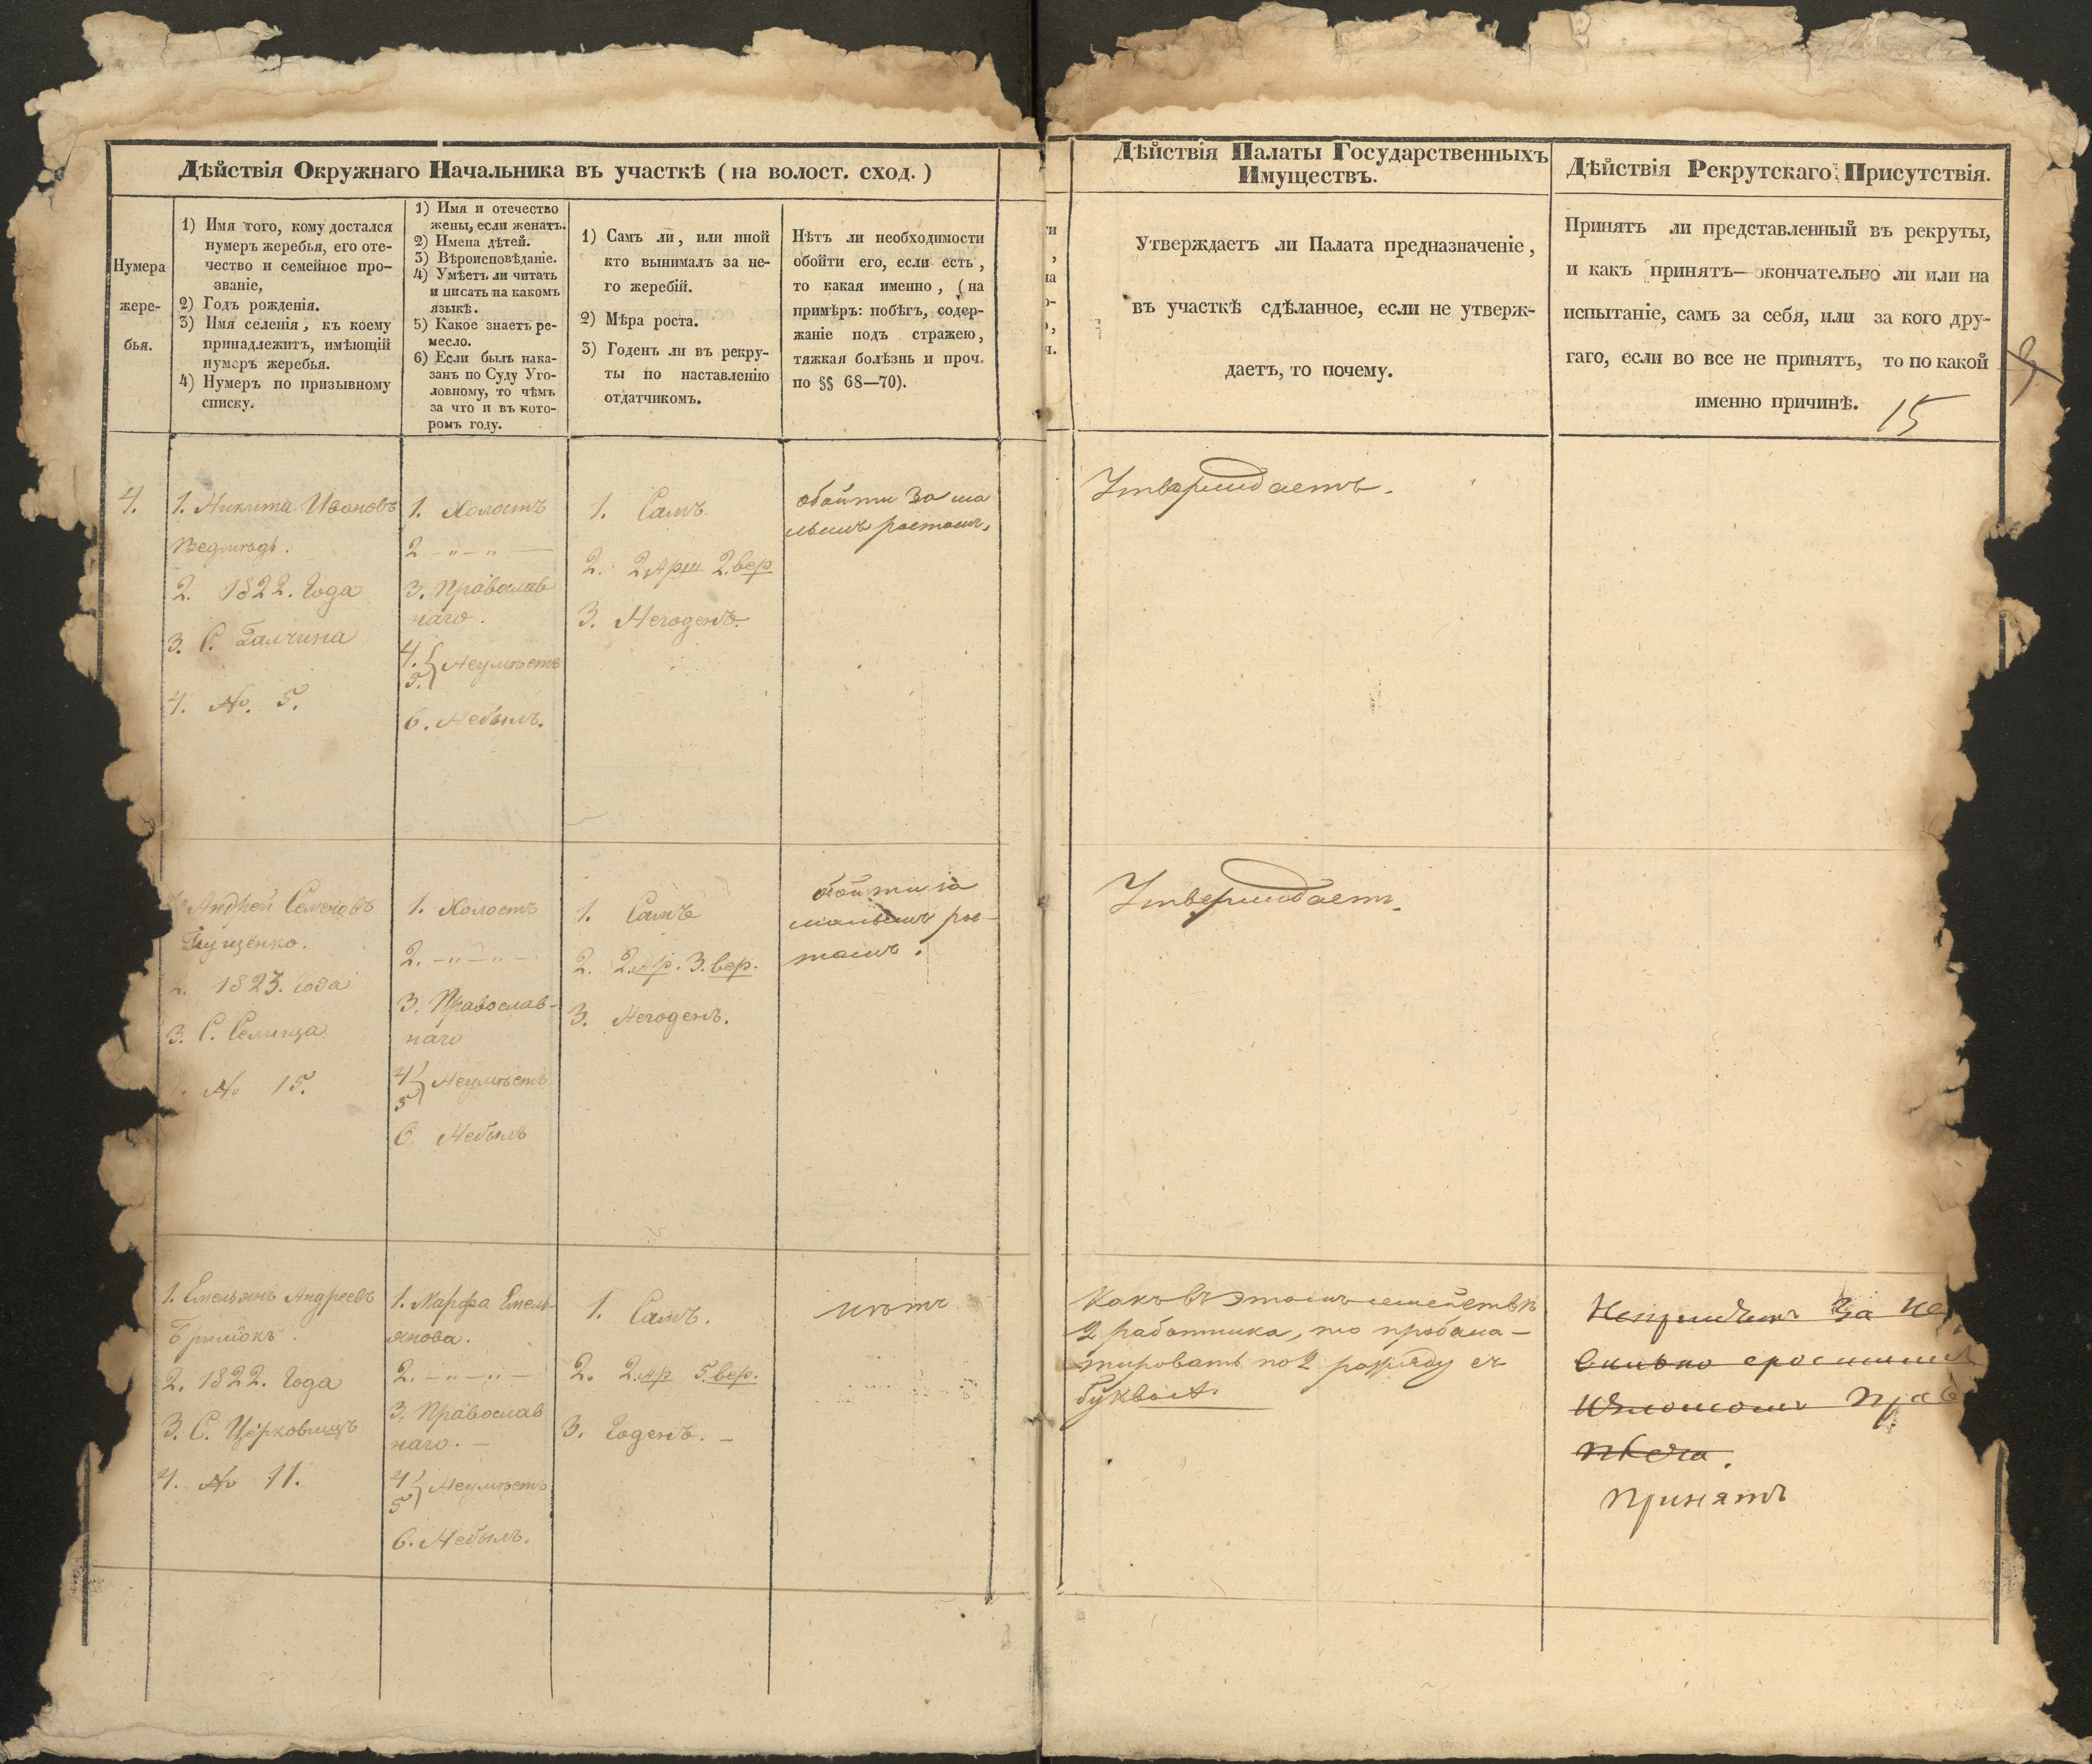 Дѣйствія Окружнаго Начальника въ участкѣ (на волост. сход.)
Нумера
жере-
бья.
1) Имя того, кому достался
нумеръ жеребья, его оте-
чество и семейное про-
званіе,
2) Годъ рожденія.
3) Имя селенія, къ коему
принадлежитъ, имѣющій
нумеръ жеребья.
4) Нумеръ по призывному
списку.
1) Имя и отечество
жены, если женатъ.
2) Имена дѣтей.
3) Вѣроисповѣданіе.
4) Умѣетъ ли читать
и писать на какомъ
языкѣ.
5) Какое знаетъ ре-
месло.
6) Если былъ нака-
занъ по Суду Уго-
ловному, то чѣмъ
за что и въ кото-
ромъ году.
1) Самъ ли, или иной
кто вынималъ за не-
го жеребій.
2) Мѣра роста.
3) Годенъ ли въ рекру-
ты по наставленію
отдатчикомъ.
Нѣтъ ли необходимости
обойти его, если есть,
то какая именно, (на
примѣръ: побѣгъ, содер-
жаніе подъ стражею,
тяжкая болѣзнь и проч.
по §§ 68—70).
4.
1. Никита Ивановъ
2. 1822. Года
3. С. Галчина
4. No. 5.
1. Холостъ
2 - „ - „ —
3. Православ
наго.
4.
5. } Неумѣетъ
6. Небылъ.
1. Самъ
2. 2 Арш 2. вер
3. Негоденъ.
обойти за ма
лымъ ростомъ,
Андрей Семеновъ
Гущенко.
2. 1823. года
3. С. Селища
No 15.
1. Холостъ
2. - „ - „ -
3. Православ-
наго
4
5 } Неумѣетъ
6. Небылъ
1. Самъ
2. 2. Ар. 3. вер.
3. Негоденъ.
обойти за
малымъ рос-
томъ.
1. Емельянъ Андреевъ
2. 1822. Года
3. С. Церковищъ
4. No 11.
1. Марфа Емель-
янова.
2. - „ - „ -
3. Православ
наго. -
4
5 } Неумѣетъ
6. Небылъ.
1. Самъ.
2. 2. Ар 5. вер.
3. Годенъ. -
нѣтъ
Дѣйствія Палаты Государственныхъ
Имуществъ.
Утверждаетъ ли Палата предназначеніе,
въ участкѣ сдѣланное, если не утверж-
даетъ, то почему.
Утверждаетъ.
Утверждаетъ.
Какъ въ этомъ семействѣ
2 работника, то
по 2 разряду съ
буквы А.
Дѣйствія Рекрутскаго Присутствія.
Принятъ ли представленный въ рекруты,
и какъ принятъ—окончательно ли или на
испытаніе, самъ за себя, или за кого дру-
гаго, если во все не принятъ, то по какой
именно причинѣ.
15
за
Принятъ